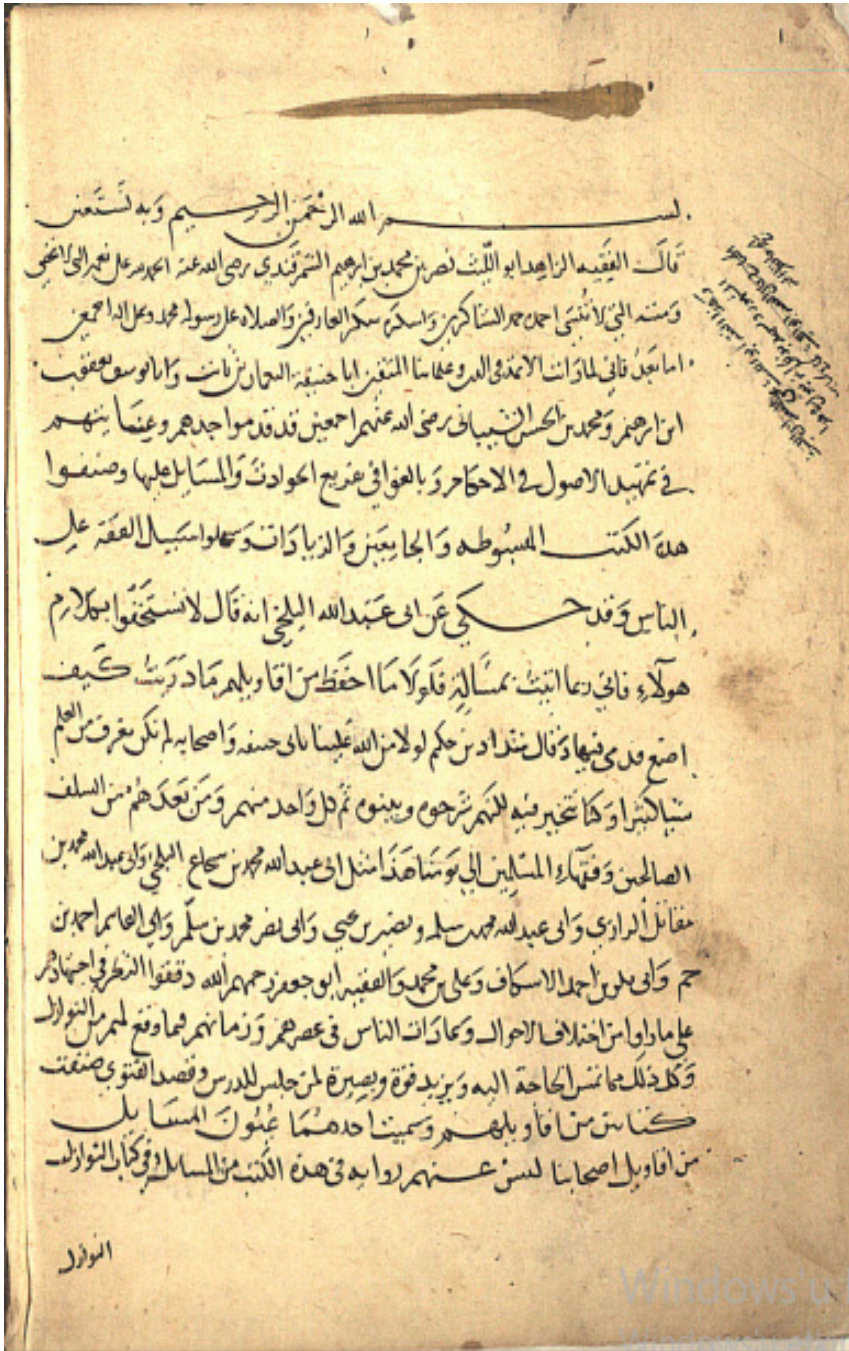 بسم الله الرحمن الرحيم وبه نستعين
قال الفقيه الزاهد ابو الليث نصر بن محمد بن ابرهيم السمرقندي رضي الله عنه الحمد لله على نعمه التي لا تخفى
ومننه التي لا تنسى احمده حمد الشاكرين واشكره شكر العارفين والصلاه على رسوله محمد وعلى اله اجمعين
اما بعد فاني لما رات الائمة في الدين وعلماينا المتقين ابا حنيفة النعمان بن ثابت وابا يوسف يعقوب
ابن ابرهيم ومحمد بن الحسن الشيباني رضي الله عنهم اجمعين قد
في تمهيد الاصول في الاحكام وبالغوا في تفريع الحوادث والمسايل عليها وصنفوا
هذه الكتب المبسوطه والجامعين والزيادات وسهلوا سبيل الفقه على
الناس وقد حكي عن ابي عبد الله البلخي انه قال لا تستخفوا بكلام
هولآء فاني ربما اتيت بمسألة فلولا ما احفظ من اقاويلهم ما دريت كيف
اضع قدمي فيها وقال شداد بن حكيم لولا من الله علينا بابي حنيفه واصحابه لم نكن نعرف من العلم
شيا كثيرا وكنا نتحير فيه لكنهم شرحوه وبينوه ثم كل واحد منهم ومن بعدهم من السلف
الصالحين وفقهاء المسلمين الى يومنا هذا مثل ابي عبد الله محمد بن شجاع البلخي وابي عبد الله محمد بن
مقاتل الرازي وابي عبد الله محمد بن سلمه ونصير بن يحيى وابي نصر محمد بن سلم وابي القاسم احمد بن
حم وابي بكر بن احمد الاسكاف وعلي بن محمد والفقيه ابو جعفر رحمهم الله دققوا النظر في اجتهادهم
على ما راوا من اختلاف الاحوال وعادات الناس في عصرهم وزمانهم فيما وقع لهم من النوازل
وكل ذلك مما تمس الحاجة اليه ويزيد قوة وبصيرة لمن جلس للدرس وقصد الفتوى صنفت
كتابين من اقاويلهم وسميت احدهما عيون المسايل
من اقاويل اصحابنا ليس عنهم روايه في هذه الكتب من المسايل وفي كتاب النوازل
النوازل